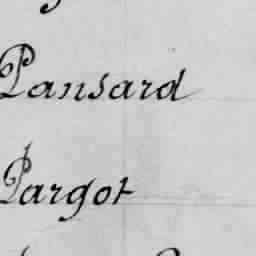 Pansard
Pargot